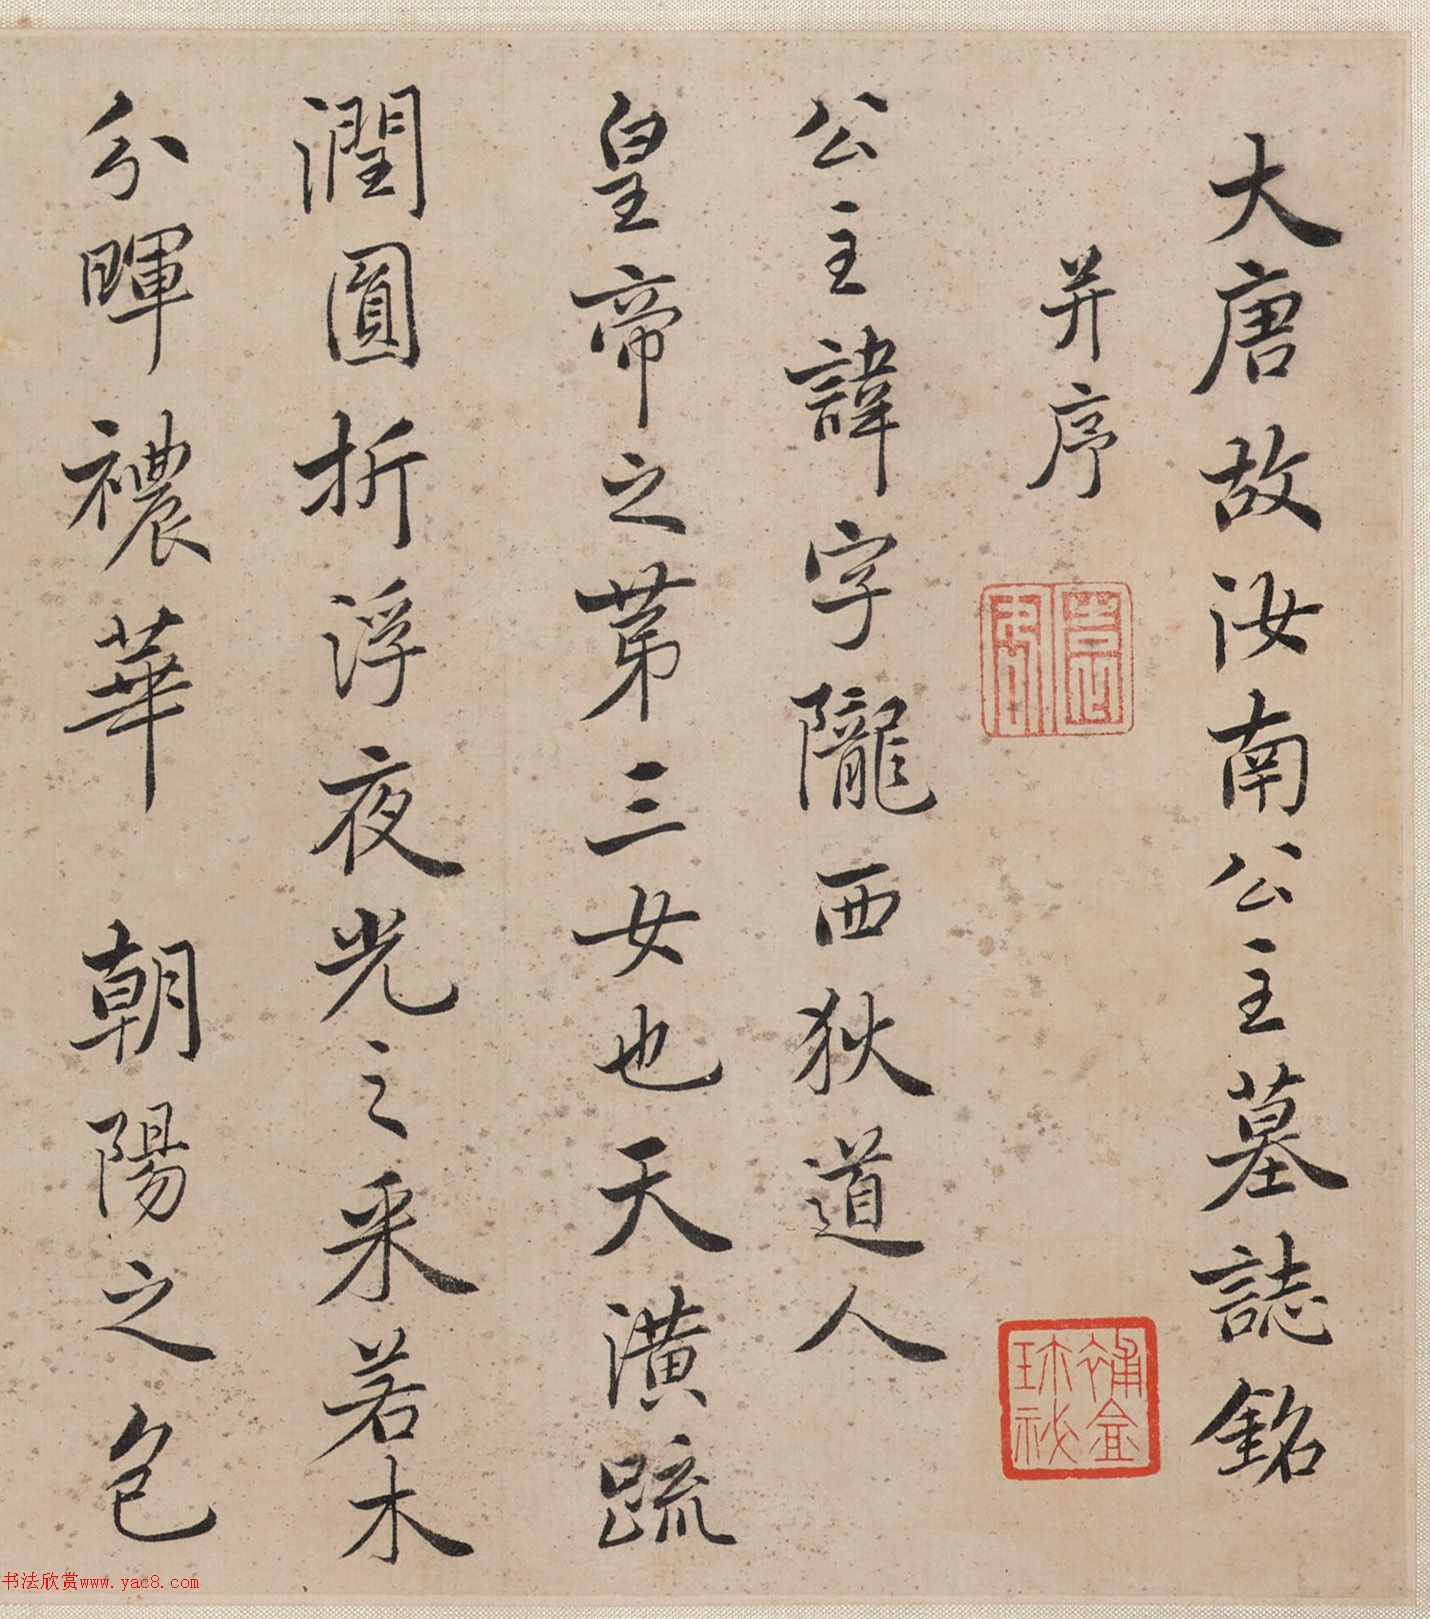 大唐故汝南公主墓誌銘
并序
公主諱字隴西狄道人
皇帝之苐三女也天潢疏
潤圓折浮夜光之采若木
分暉禯華朝陽之色
補金
珎祕
书法欣赏www.yac8.com